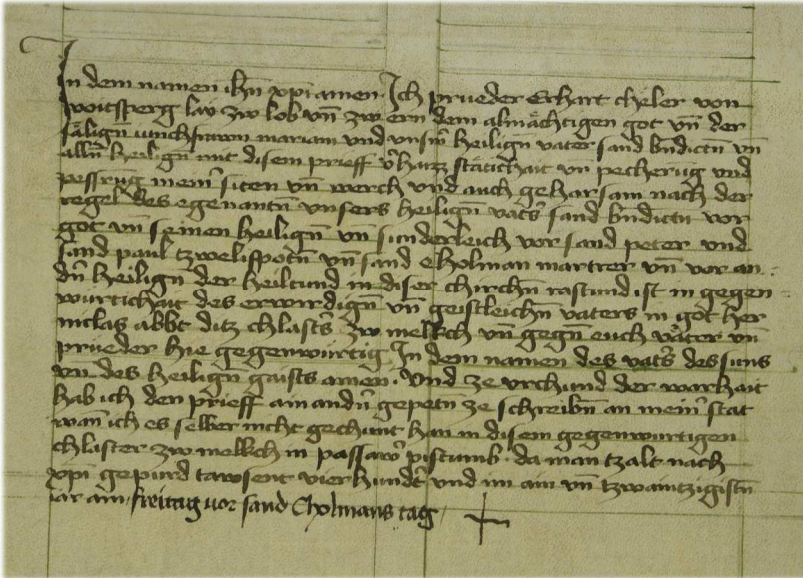 In dem namen ihū xpi amen · Ich prueder Erhart cheler von
voitsperg lay zw lob vn̄ zw ern dem almächtigen got vn̄ der
sälign̄ iunchfrawn mariam vnd vnserm heilign̄ vater sand bndictn vn̄
alln̄ heilign̄ mit disem prieff v̓haizz stätichait vn̄ pecherūg vnd
pessrūg mein̄ siten vn̄ werch vnd auch gehorsam nach der
regel des egenantn̄ vnsers heilign̄ vaters sand bndictn vor
got vn̄ seinen heilign̄ vn̄ sunderleich vor sand peter vnd
sand paul tzwelifpotn̄ vn̄ sand cholman martrer vn̄ vor an
dn̄ heilign̄ der heiltumb in diser chirchn̄ rastund ist in gegen
wurtichait des erwirdign̄ vn̄ geistleichn̄ vaters in got her
niclas abbt ditz chlasters zw melkch vn̄ gegn̄ euch väter vn̄
prueder hie gegenwürtig In dem namen des vaters des suns
vn̄ des heilign̄ gaists amen · Vnd ze vrchund der warhait
hab ich den prieff ain andn̄ gepetn̄ ze schreibn̄ an mein̄ stat
wan̄ ich es selber nicht gechunt han in disem gegenwurtigen
chlaster zw melkch in passaw̓ pistumb · da man tzalt nach
xpi gepurd tawsent vierhundt̓ vnd im ain vn̄ tzwaintzigistn̄
iar am freitag vor sand Cholmans tag